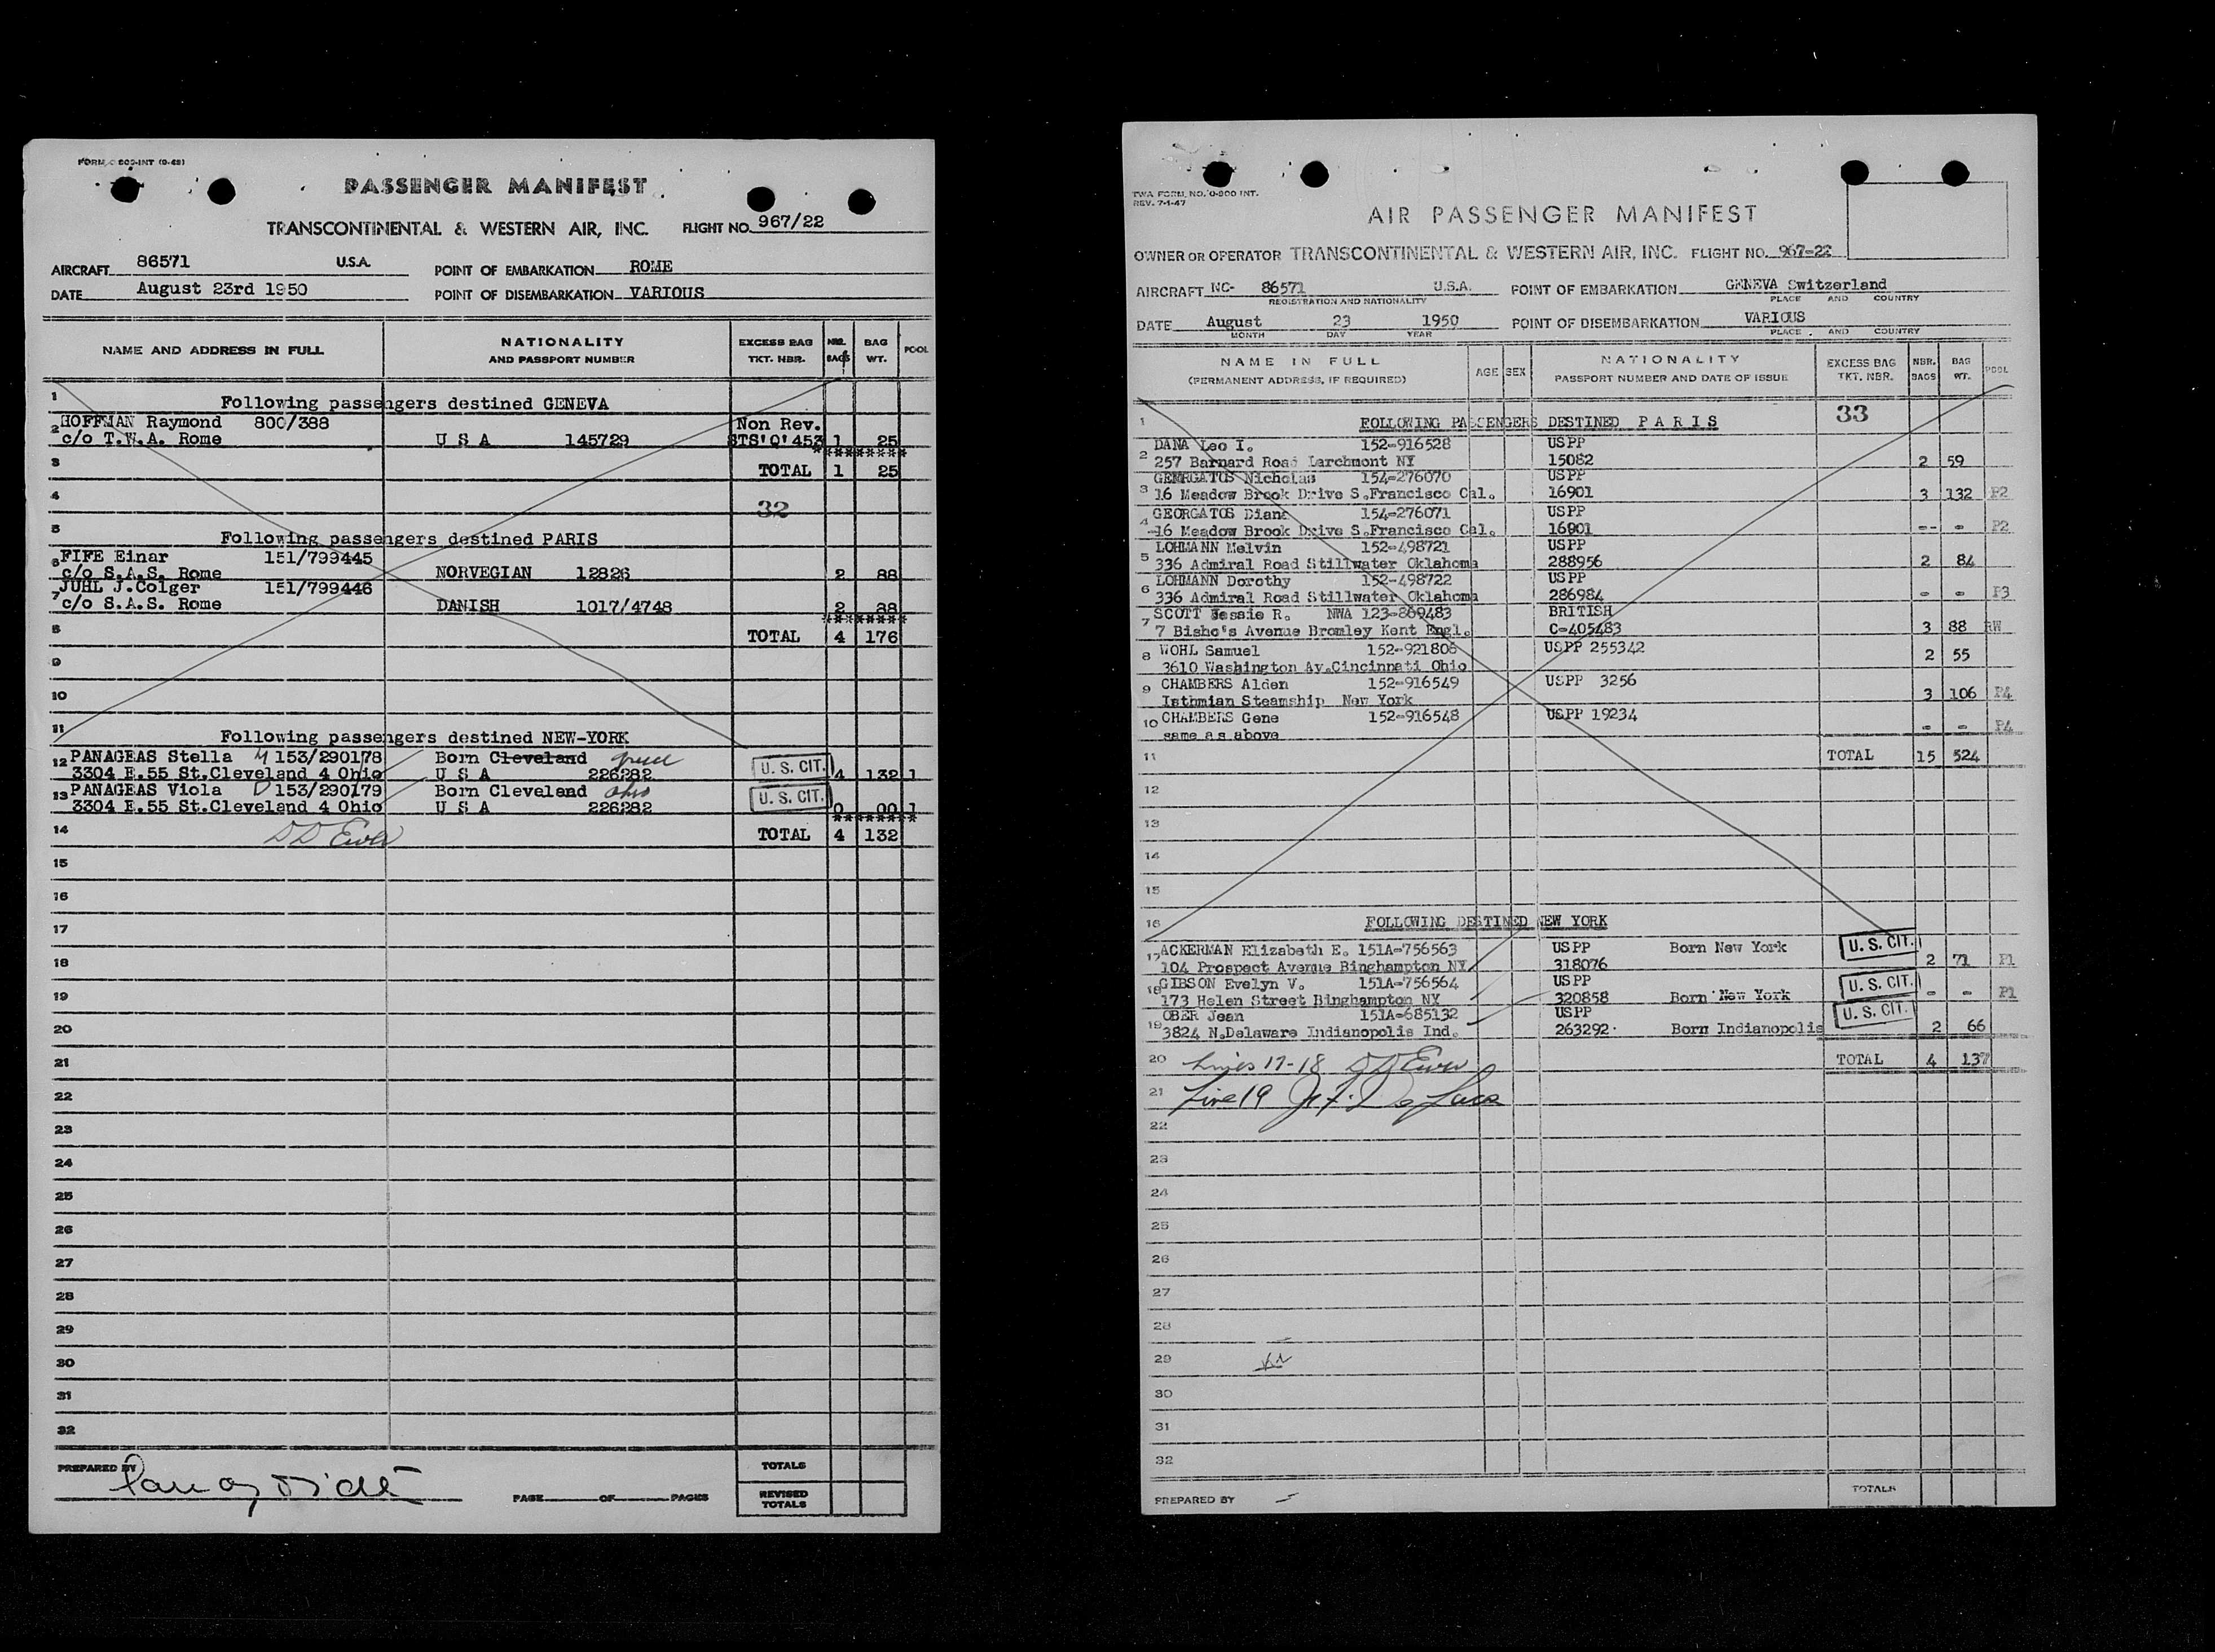 FORM O 800-INT (9-48)
PASSENGER MANIFEST
TRANSCONTINENTAL & WESTERN AIR, INC. FLIGHT NO. 967/22
AIRCRAFT 86571 U.S.A. POINT OF EMBARKATION ROME
DATE August 23rd 1950 POINT OF DISEMBARKATION VARIOUS
NAME AND ADDRESS IN FULL NATIONALITY AND PASSPORT NUMBER EXCESS BAG TKT. NBR. NBR. BAGS BAG WT. POOL
1 Following passengers destined GENEVA
2 HOFFMAN Raymond 800/388 Non Rev.
c/o T.W.A. Rome U S A 145729 STS'O'453 1 25
*********
3 TOTAL 1 25
4 32
5 Following passengers destined PARIS
6 FIFE Einar 151/799445
c/o S.A.S. Rome NORVEGIAN 12826 2 88
7 JUHL J.Colger 151/799446
c/o S.A.S. Rome DANISH 1017/4748 2 88
*********
8 TOTAL 4 176
9
10
11 Following passengers destined NEW-YORK
12 PANAGEAS Stella 153/290178 Born Cleveland U. S. CIT.
3304 E.55 St.Cleveland 4 Ohio U S A 226282 4 132 1
13 PANAGEAS Viola 153/290179 Born Cleveland Ohio U. S. CIT.
3304 E.55 St.Cleveland 4 Ohio U S A 226282 0 00 1
*********
14 TOTAL 4 132
15
16
17
18
19
20
21
22
23
24
25
26
27
28
29
30
31
32
PREPARED BY TOTALS
PAGE OF PAGES REVISED TOTALS
TWA FORM NO. O-800 INT.
REV. 7-1-47
AIR PASSENGER MANIFEST
OWNER OR OPERATOR TRANSCONTINENTAL & WESTERN AIR, INC. FLIGHT NO. 967-22
AIRCRAFT NC- 86571 U.S.A. POINT OF EMBARKATION GENEVA Switzerland
REGISTRATION AND NATIONALITY PLACE AND COUNTRY
DATE August 23 1950 POINT OF DISEMBARKATION VARIOUS
MONTH DAY YEAR PLACE AND COUNTRY
NAME IN FULL (PERMANENT ADDRESS, IF REQUIRED) AGE SEX NATIONALITY PASSPORT NUMBER AND DATE OF ISSUE EXCESS BAG TKT. NBR. NBR. BAGS BAG WT. POOL
1 FOLLOWING PASSENGERS DESTINED P A R I S 33
2 DANA Leo I. 152-916528 USPP
257 Barnard Road Larchmont NY 15082 2 59
3 GEORGATOS Nicholas 154-276070 USPP
16 Meadow Brook Drive S.Francisco Cal. 16901 3 132 P2
4 GEORGATOS Diana 154-276071 USPP
16 Meadow Brook Drive S.Francisco Cal. 16901 -- - P2
5 LOHMANN Melvin 152-498721 USPP
336 Admiral Road Stillwater Oklahoma 288956 2 84
6 LOHMANN Dorothy 152-498722 USPP
336 Admiral Road Stillwater Oklahoma 286984 - - P3
7 SCOTT Jessie R. NWA 123-869483 BRITISH
7 Bisho's Avenue Bromley Kent Engl. C-405483 3 88 RW
8 WOHL Samuel 152-921806 USPP 255342
3610 Washington Av.Cincinnati Ohio 2 55
9 CHAMBERS Alden 152-916549 USPP 3256
Isthmian Steamship New York 3 106 P4
10 CHAMBERS Gene 152-916548 USPP 19234
same as above - - P4
11 TOTAL 15 524
12
13
14
15
16 FOLLOWING DESTINED NEW YORK
17 ACKERMAN Elizabeth E. 151A-756563 USPP Born New York U. S. CIT.
104 Prospect Avenue Binghampton NY 318076 2 71 P1
18 GIBSON Evelyn V. 151A-756564 USPP U. S. CIT.
173 Helen Street Binghampton NY 320858 Born New York - - P1
19 OBER Jean 151A-685132 USPP U. S. CIT.
3824 N.Delaware Indianopolis Ind. 263292 Born Indianopolis 2 66
20 Lines 17-18 TOTAL 4 137
21 Line 19
22
23
24
25
26
27
28
29
30
31
32
PREPARED BY TOTALS